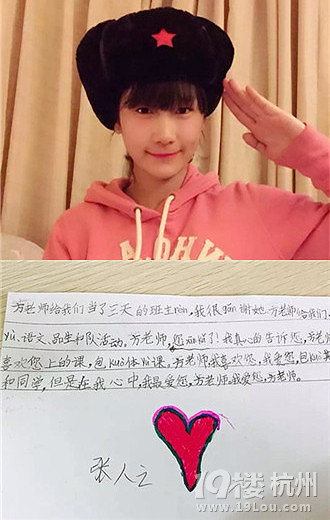 方老师给我们当了三天的班主rèn,我很gǎn谢她。方老师给我们
yù、语文、品生和队活动,方老师,您xīn kǔ了!我真心的告诉您,方老
喜欢您上的课,包kuò体yù课。方老师我喜欢您,我爱您,包kuò
和同学,但是在我心中,我最爱您,方老师。我爱您,方老师。
张人之
19楼 杭州
www.19lou.com